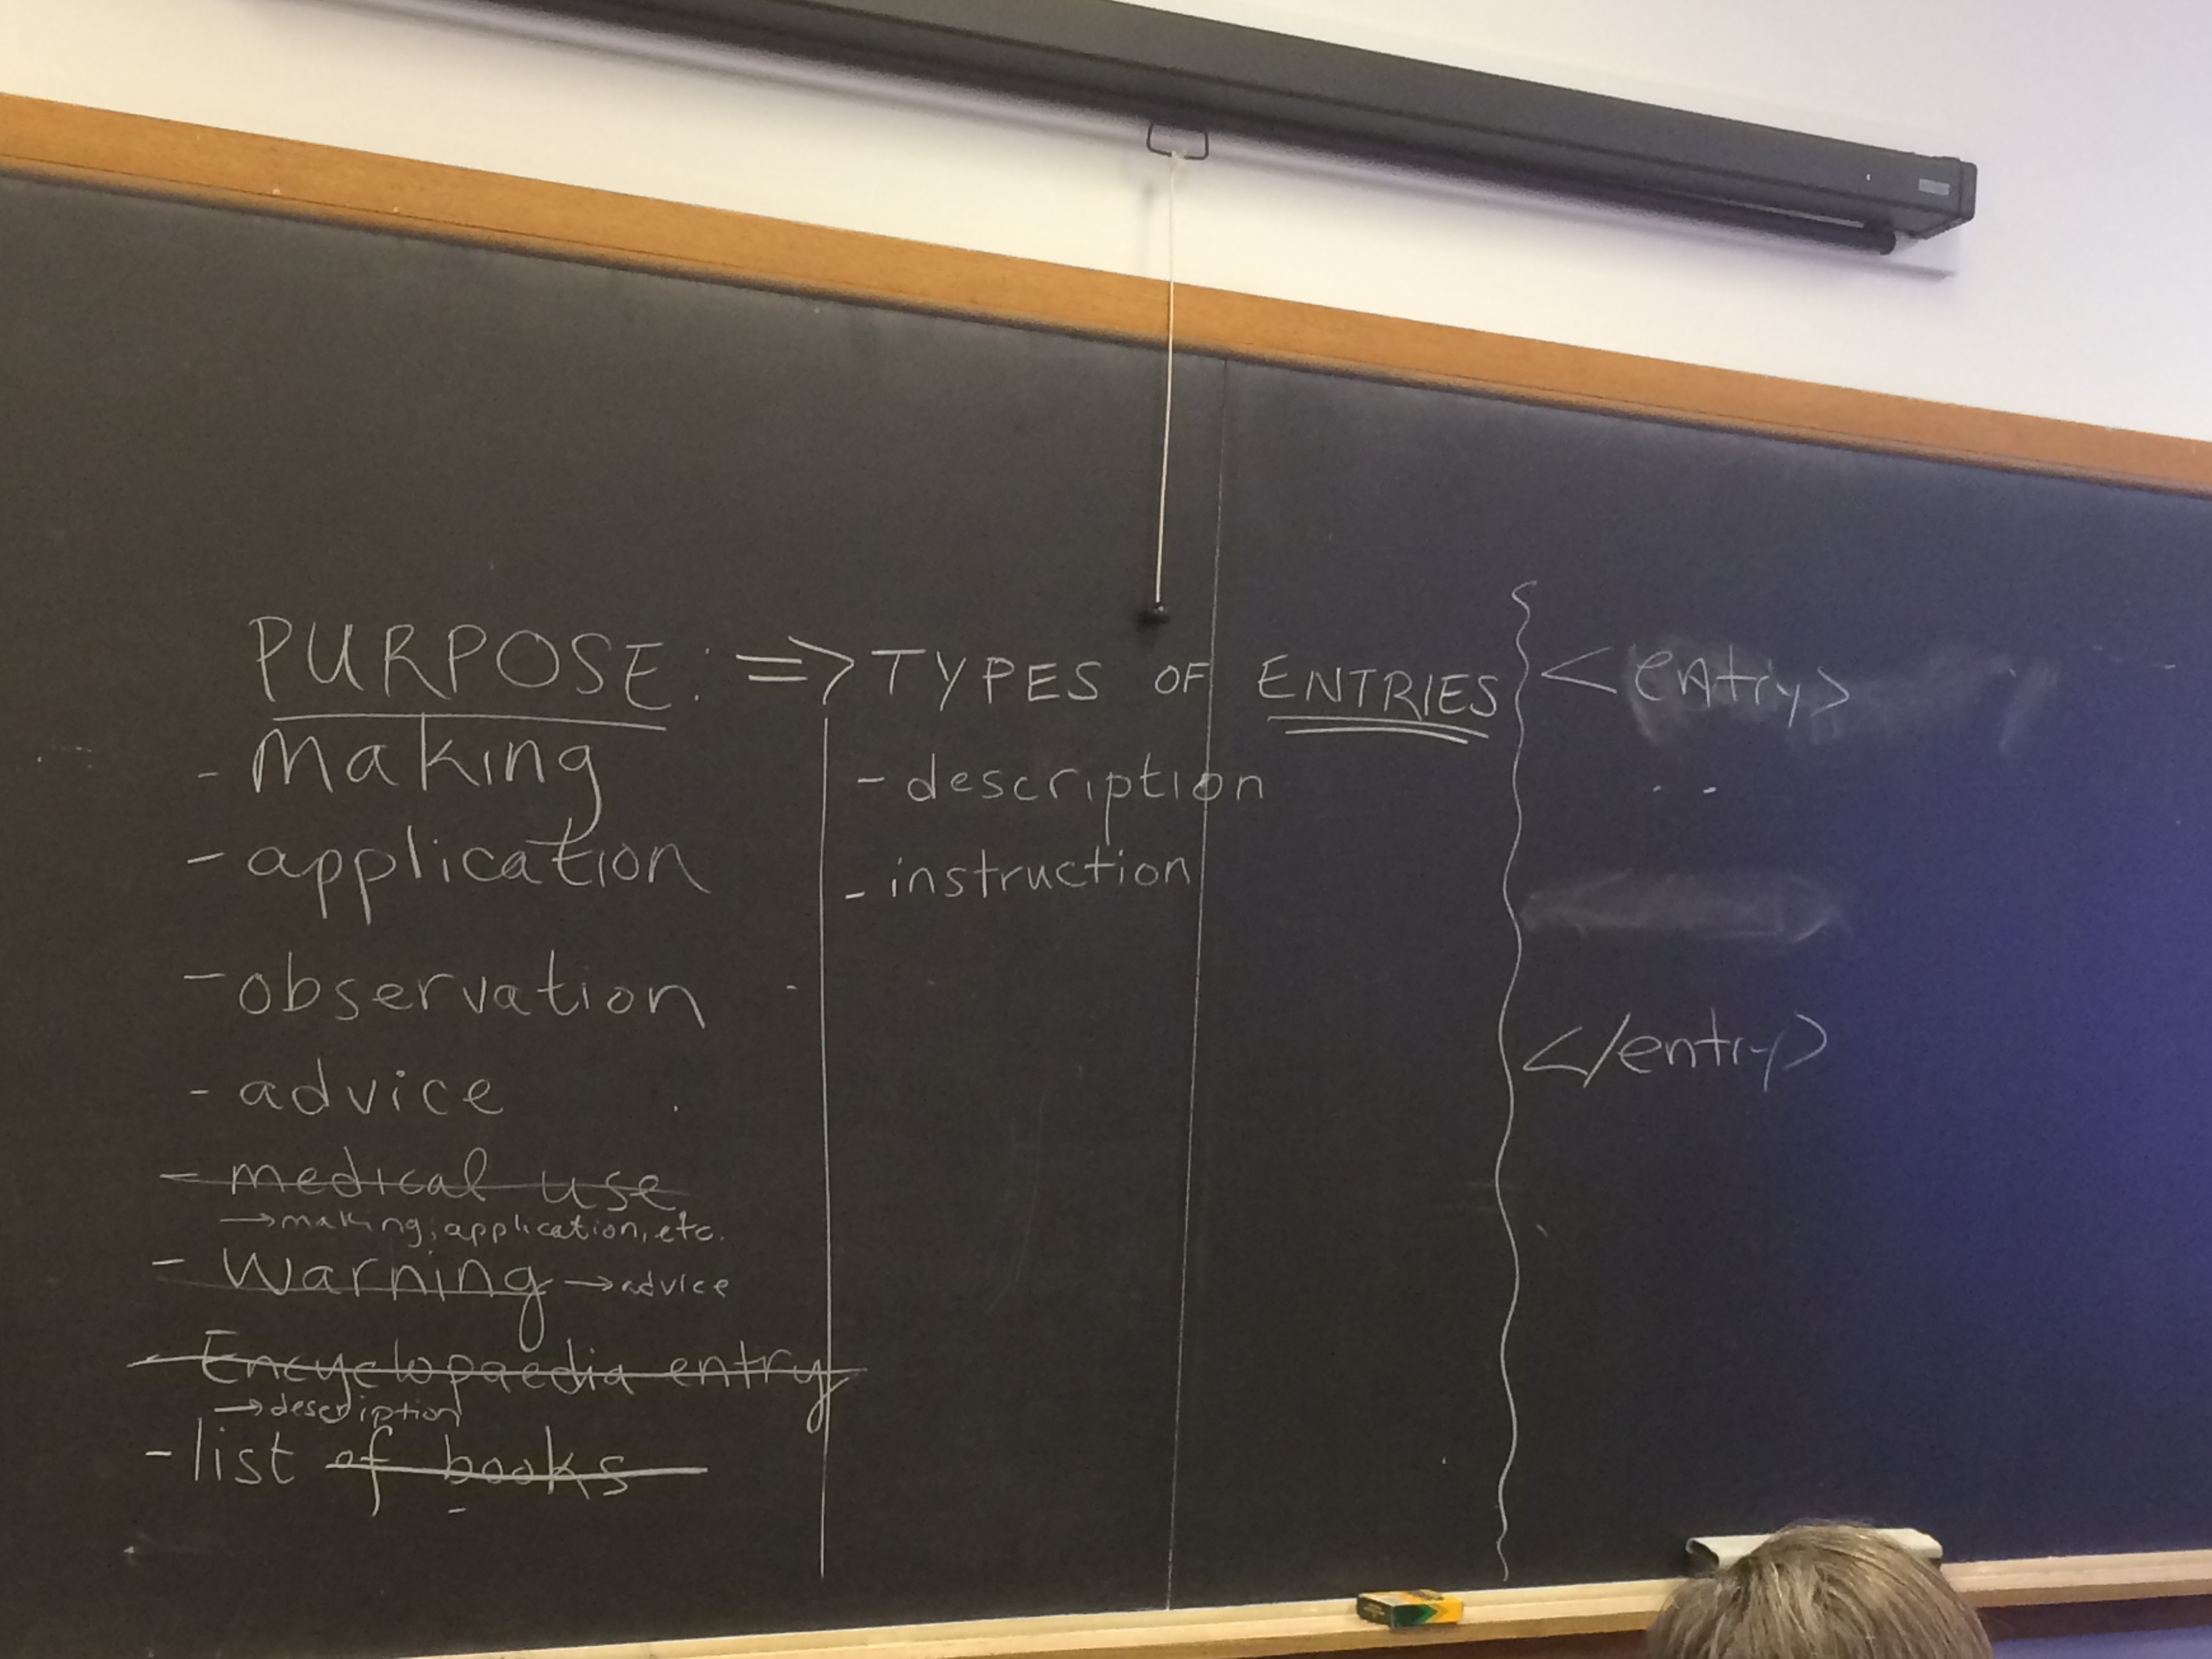 PURPOSE: => TYPES OF ENTRIES
- making
- application
- observation
- advice
- medical use
→ making, application, etc.
- Warning → advice
- Encyclopaedia entry
→ description
- list of books
- description
- instruction
<entry>
</entry>